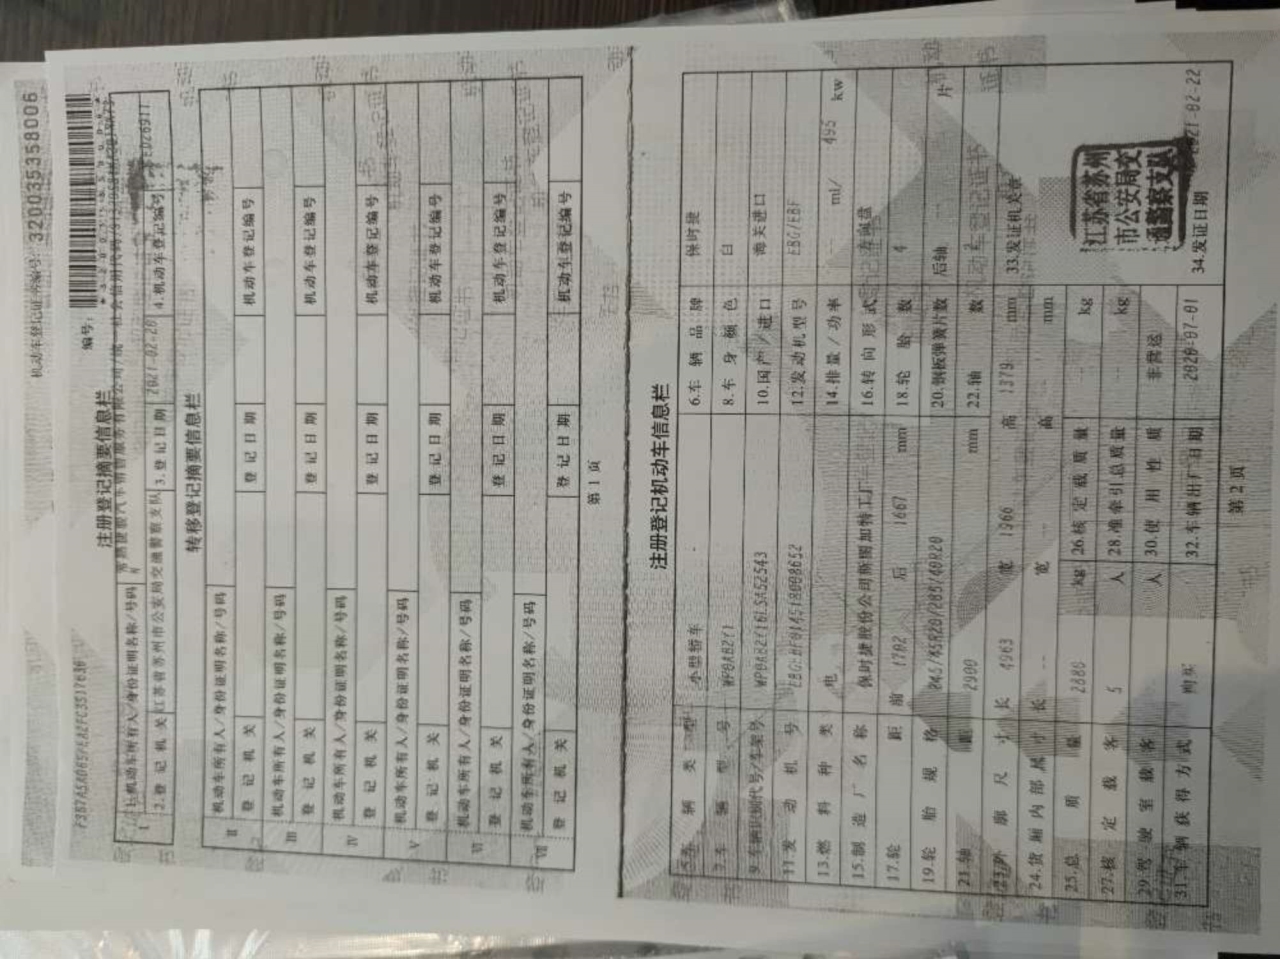 机动车登记证书编号: 320035358006
注册登记摘要信息栏
编号:
I 1.机动车所有人/身份证明名称/号码
2.登记机关 江苏省苏州市公安局交通警察支队 3.登记日期 2021-02-20 4.机动车登记编号
转移登记摘要信息栏
II 机动车所有人/身份证明名称/号码
登记机关 登记日期 机动车登记编号
III 机动车所有人/身份证明名称/号码
登记机关 登记日期 机动车登记编号
IV 机动车所有人/身份证明名称/号码
登记机关 登记日期 机动车登记编号
V 机动车所有人/身份证明名称/号码
登记机关 登记日期 机动车登记编号
VI 机动车所有人/身份证明名称/号码
登记机关 登记日期 机动车登记编号
VII 机动车所有人/身份证明名称/号码
登记机关 登记日期 机动车登记编号
第1页
注册登记机动车信息栏
5.车辆类型 小型轿车 6.车辆品牌 保时捷
7.车辆型号 WP0AB2Y1 8.车身颜色 白
9.车辆识别代号/车架号 10.国产/进口 海关进口
11.发动机号 12.发动机型号 EBG/EBF
13.燃料种类 电 14.排量/功率 -- ml/ 495 kw
15.制造厂名称 保时捷股份公司斯图加特工厂 16.转向形式 方向盘
17.轮距 前 1702 后 1667 mm 18.轮胎数 4
19.轮胎规格 245/45R20/285/40R20 20.钢板弹簧片数 后轴 片
21.轴距 2900 mm 22.轴数
23.外廓尺寸 长 4963 宽 1966 高 1379 mm 33.发证机关章
24.货厢内部尺寸 长 -- 宽 -- 高 mm
江苏省苏州
市公安局交
通警察支队
25.总质量 2880 kg 26.核定载质量 -- kg
27.核定载客 5 人 28.准牵引总质量 -- kg
29.驾驶室载客 人 30.使用性质 非营运
31.车辆获得方式 购买 32.车辆出厂日期 2020-07-01 34.发证日期 2021-02-22
第2页